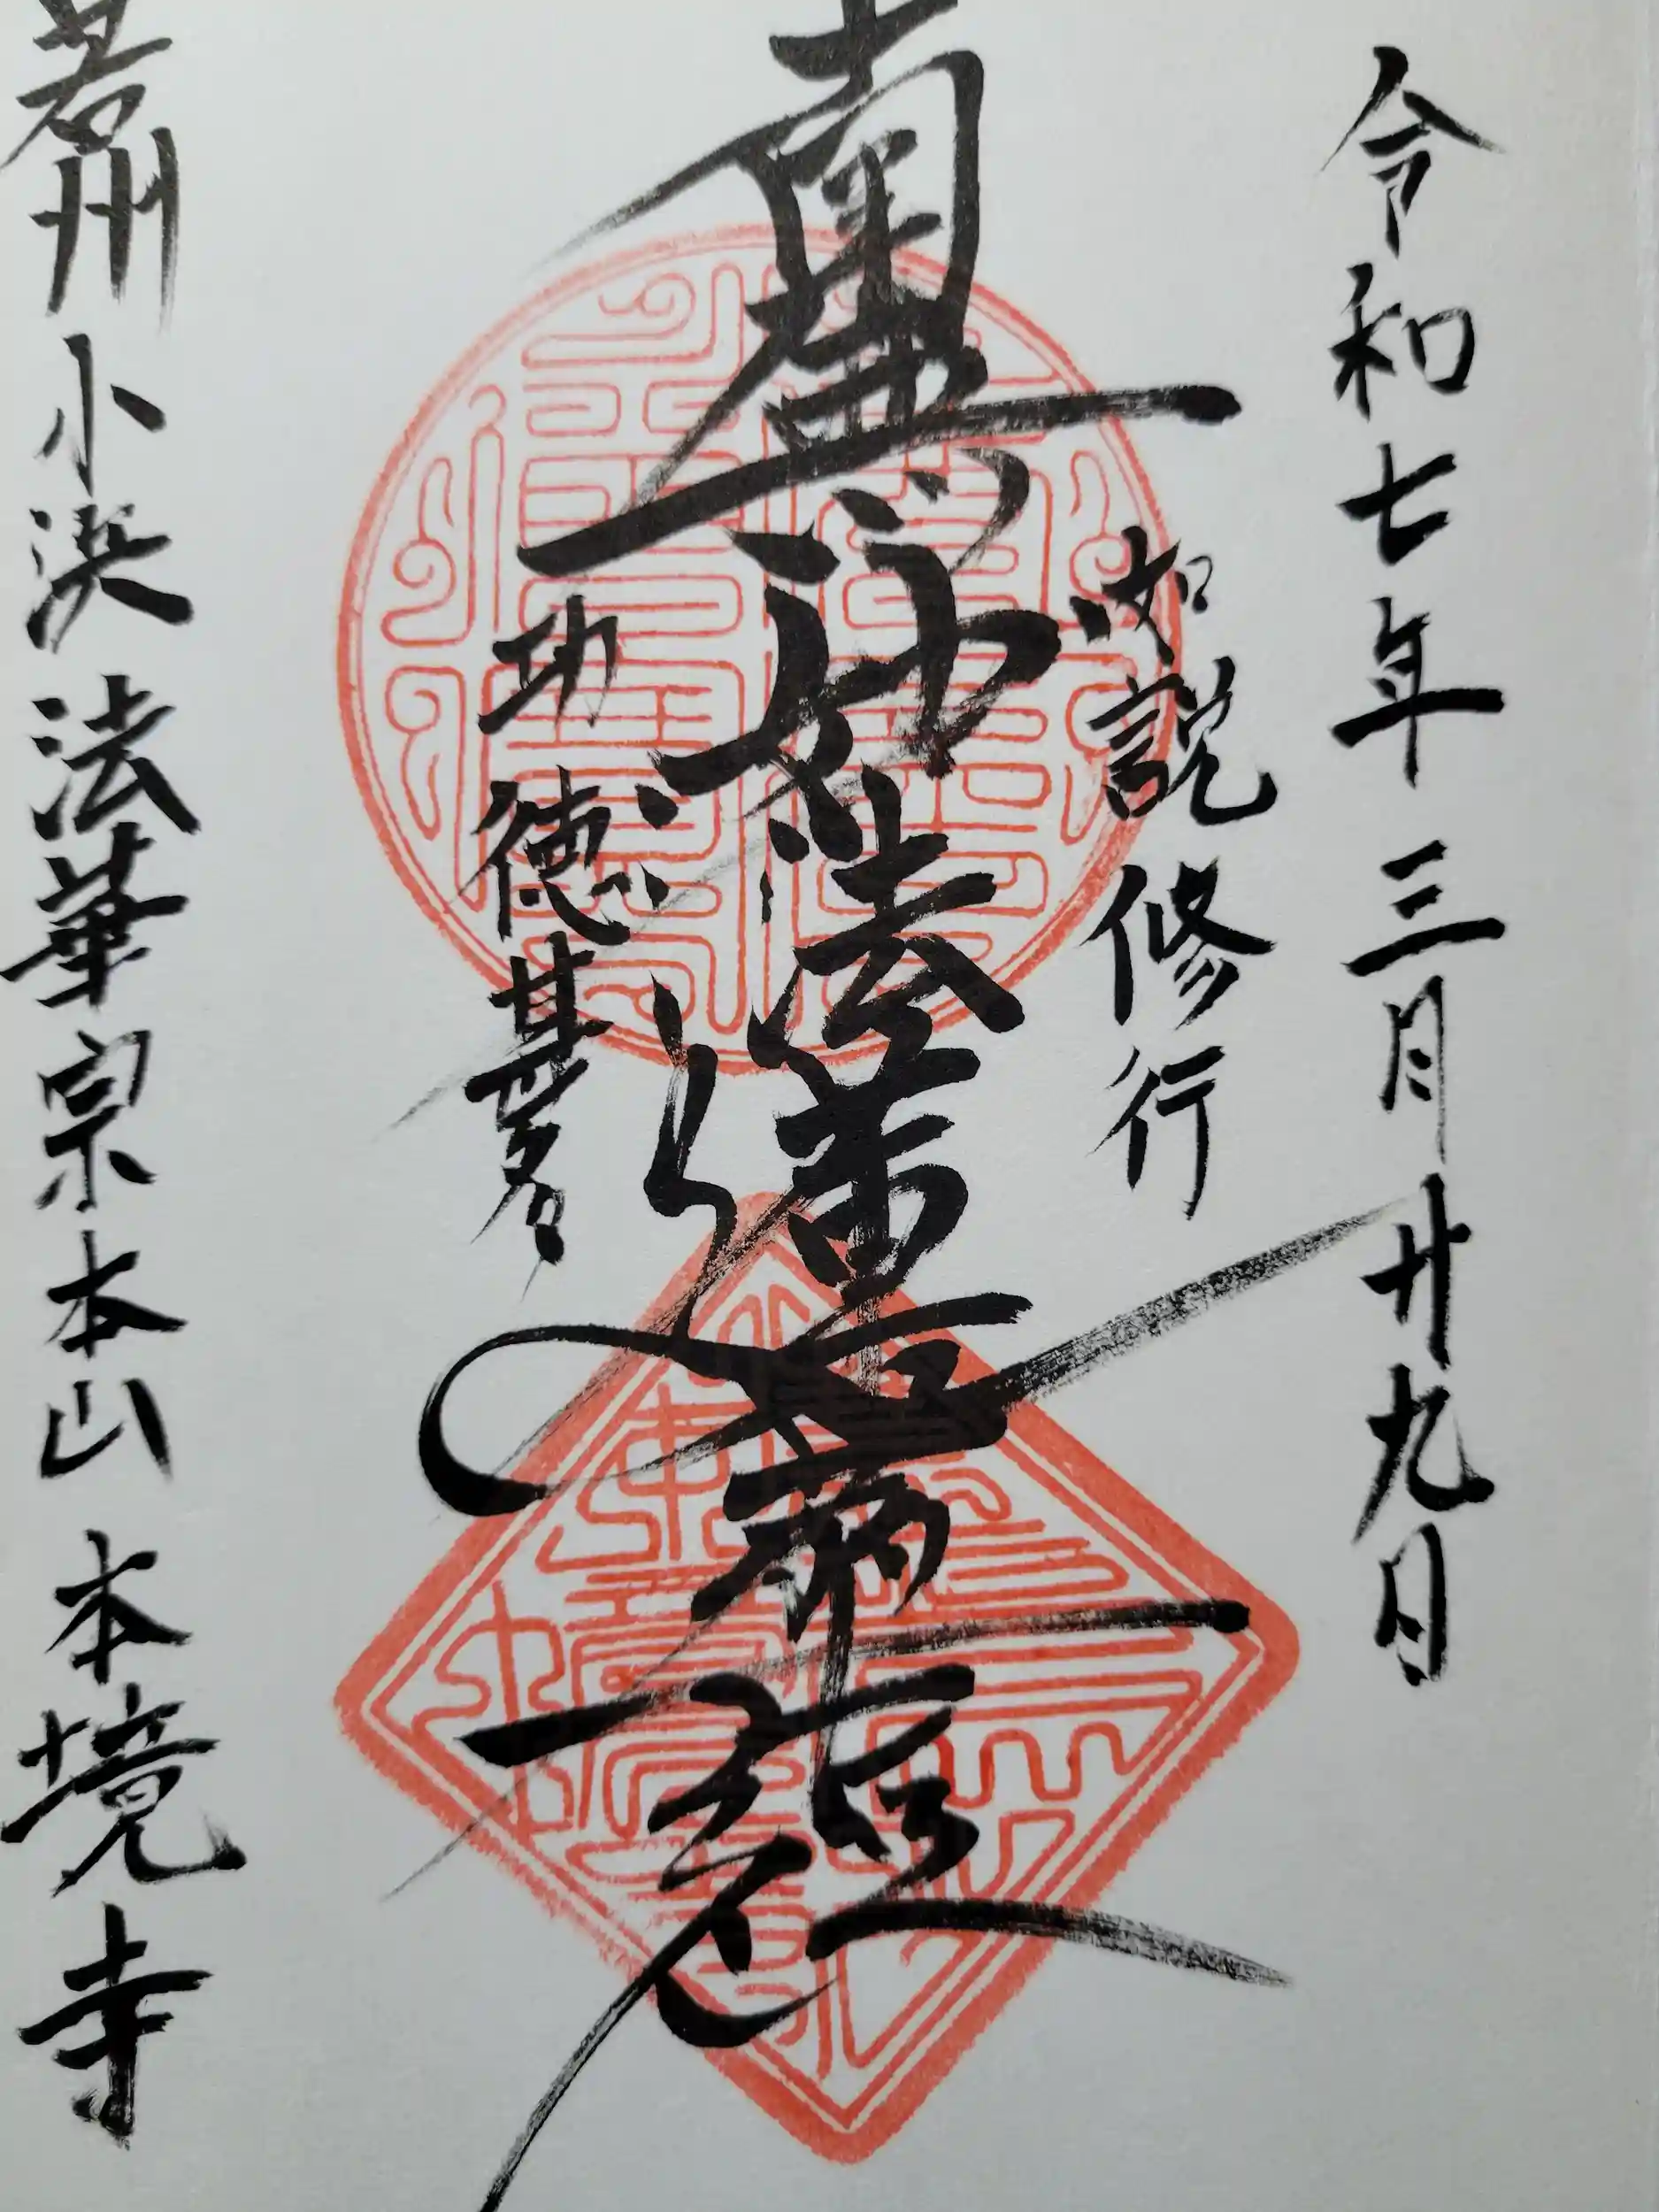 令和七年三月廿九日
如説修行
南無妙法蓮華経
功徳甚多
若州小浜法華宗本山 本境寺